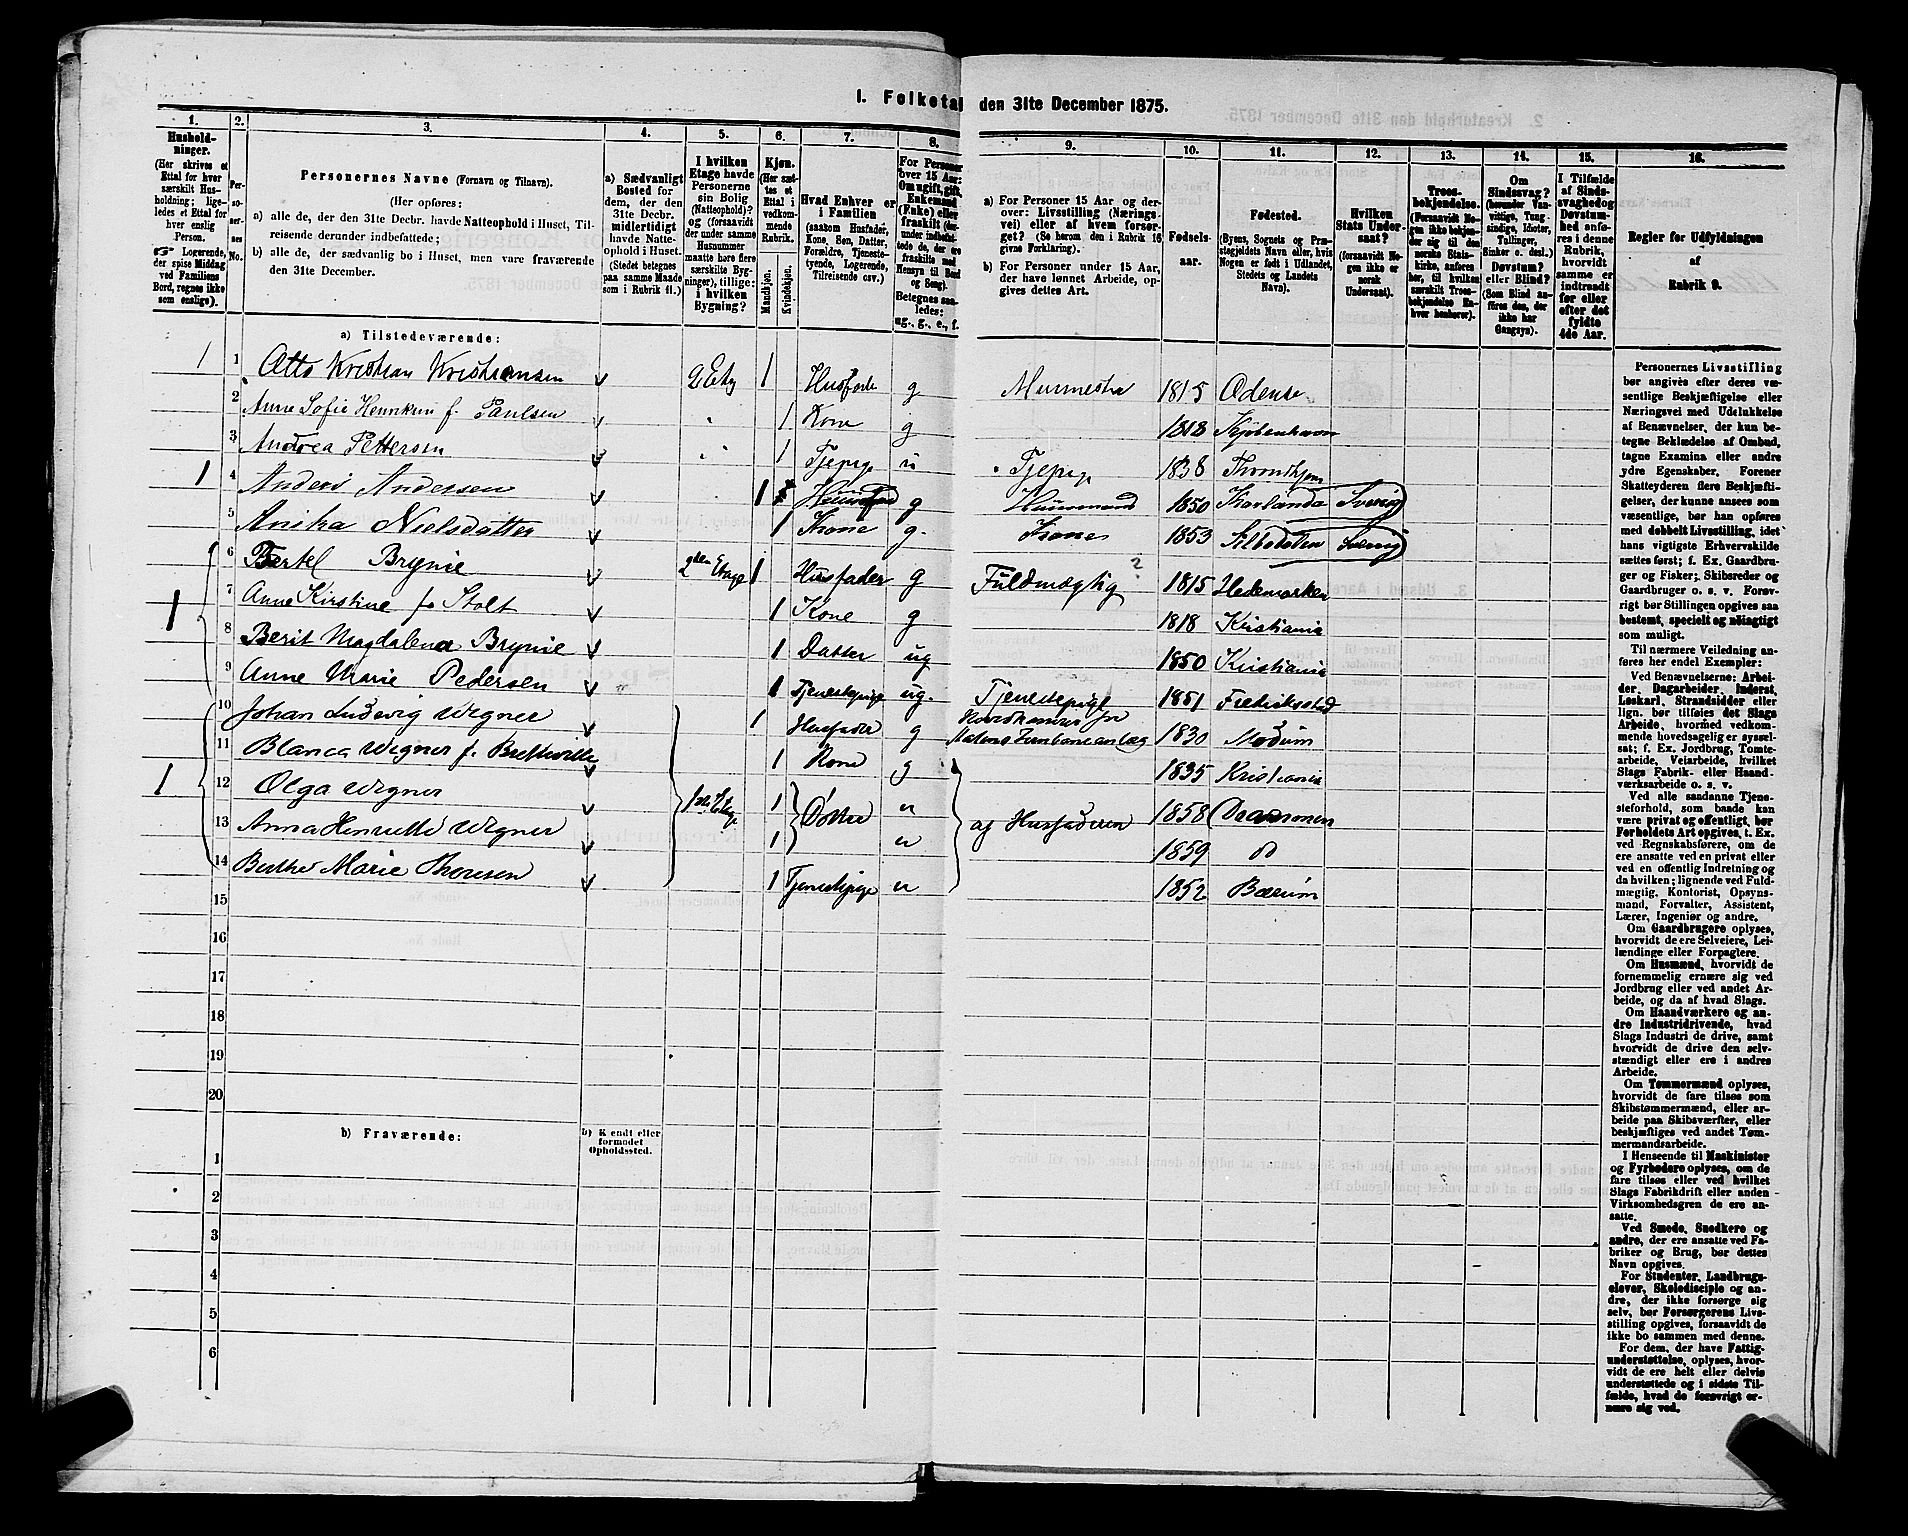 I. Folketal den 31te December 1875.
1. 2. 3. 4. 5. 6. 7. 8. 9. 10. 11. 12. 13. 14. 15. 16.
Husholdninger.
(Her skrives et
Ettal for hver
særskilt Husholdning;
ligeledes et Ettal for
hver enslig
Person.
☞ Logerende,
der spise Middag
ved Familiens
Bord, regnes ikke
som enslige).
Personernes No.
Personernes Navne (Fornavn og Tilnavn).
(Her opføres:
a) alle de, der den 31te Decbr. havde Natteophold i Huset, Tilreisende derunder indbefattede;
b) alle de, der sædvanlig bo i Huset, men vare fraværende
den 31te December.
a) Sædvanligt
Bosted for
dem, der den
31te Decbr.
midlertidigt
havde Natteophold i Huset.
(Stedet betegnes
paa samme Maade
som i Rubrik 11.)
I hvilken
Etage havde
Personerne
sin Bolig
(Natteophold)?
og (forsaavidt
der under samme
Husnummer
maatte høre flere
særskilte Bygninger), tillige:
i hvilken
Bygning?
Kjøn.
(Her sættes et
Ettal i
vedkommende
Rubrik.
Mandkjøn.
Kvindekjøn.
Hvad Enhver er
i Familien
(saasom Husfader,
Kone, Søn, Datter,
Forældre, Tjenestetyende, Logerende,
Tilreisende osv.)
For Personer
over 15 Aar:
Om ugift, gift,
Enkemand
(Enke) eller
fraskilt
Betegnes saaledes:
ug., g., e., f.
a) For Personer 15 Aar og derover: Livsstilling (Næringsvei) eller af hvem forsørget? (Se herom den i Rubrik 16
givne Forklaring).
b) For Personer under 15 Aar,
der have lønnet Arbeide, opgives dettes Art.
Fødselsaar.
Fødested.
(Byens, Sognets og Præstegjeldets Navn eller, hvis
Nogen er født i Udlandet,
Stedets og Landets
Navn).
Hvilken
Stats Undersaat?
(forsaavidt Nogen ikke er
norsk
Undersaat).
Troesbekjendelse.
(Forsaavidt Nogen ikke bekjender sig til den
norske Statskirke, anføres
her, til hvilken
særskilt Troesbekjendelse Enhver henhører).
Om
Sindssvag?
(herunder Vanvittige, Tungsindige, Idioter,
Tullinger,
Sinker o. desl.)
Døvstum?
eller Blind?
(Som Blind anføres den, der
ikke har
Gangsyn).
I Tilfælde
af Sindssvaghed og
Døvstumhed anføres i denne
Rubrik,
hvorvidt
samme er
indtraadt
før eller
efter det
fyldte
4de Aar.
Regler for Udfyldningen
af
Rubrik 9.
a) Tilstedeværende:
1 1 Otto Kristian Kristiansen 2 Etg 1 Husfade g Murmester 1815 Odense
2 Anne Sofie Henriksen f. Paulsen 1 Kone g 1818 Kjøbenhavn
3 Andrea Pettersen 1 Tjepige u Tjepige 1838 Trondhjem
1 4 Anders Andersen 1 g Huusmand 1850 Karlanda Sverig
5 Anika Nielsdatter 1 Kone g. Kone 1853 Sverig
6 Bertel Brynie 2den Etage 1 Husfader g Fuldmægtig ? 1815 Hedemarken
1 7 Anne Kirstine f. Stolt 1 Kone g 1818 Kristiania
8 Berit Magdalena Brynie 1 Datter ug 1850 Kristiania
9 Anne Marie Pedersen 1 Tjenestepige ug. Tjenestepige 1851 Fredriksstad
10 Johan Ludvig Wegner 1 Husfader g 1830 Modum
11 Blanca Wegner f. Bretteville 1 Kone g 1835 Kristiania
1 12 Olga Wegner 1ste Etage 1 Døttre u af Husfaderen 1858 Drammen
13 Anna Henriette Wegner 1 u 1859 do
14 Berthe Marie Thoresen 1 Tjenestepige u 1852 Bærum
15
16
17
18
19
20
b) Fraværende:
b) Kjendt eller
formodet
Opholdssted.
1
2
3
4
5
6
Personernes Livsstilling
bør angives efter deres væsentlige Beskjæftigelse eller
Næringsvei med Udelukkelse
af Benævnelser, der kun betegne Beklædelse af Ombud,
tagne Examina eller andre
ydre Egenskaber. Forener
Skatteyderen flere Beskjæftigelser, der kunne ansees som
væsentlige, bør han opføres
med dobbelt Livsstilling, idet
hans vigtigste Erhvervskilde
sættes først; f. Ex. Gaardbruger og Fisker; Skibsreder og
Gaardbruger o. s. v. Forøvrigt bør Stillingen opgives saa
bestemt, specielt og nøiagtigt
som muligt.
Til nærmere Veiledning anføres her endel Exempler:
Ved Benævnelserne: Arbeider, Dagarbeider, Inderst,
Løskarl, Strandsidder eller
lign. bør tilføies det Slags
Arbeide, hvormed vedkommende hovedsagelig er sysselsat; f. Ex. Jordbrug, Tomtearbeide, Veiarbeide, hvilket
Slags Fabrik- eller Haandværksarbeide o. s. v.
Ved alle saadanne Tjenesteforhold, som baade kan
være privat og offentligt, bør
Forholdets Art opgives, t. Ex.
ved Regnskabsførere, om de
ere ansatte ved en privat eller
ved en offentlig Indretning og
da hvilken; lignende ved Fuldmægtig, Kontorist, Opsynsmand, Forvalter, Assistent,
Lærer, Ingeniør og andre.
Om Gaardbrugere oplyses,
hvorvidt de ere Selveiere, Leilændinge eller Forpagtere.
Om Husmænd, hvorvidt de
fornemmelig ernære sig ved
Jordbrug eller ved andet Arbeide, og da af hvad Slags.
Om Haandværkere og andre Industridrivende, hvad
Slags Industri de drive, samt
hvorvidt de drive den selvstændigt eller ere i andres
Arbeide.
Om Tømmermænd oplyses,
hvorvidt de fare tilsøs som
Skibstømmermænd, eller arbeide paa Skibsværfter, eller
beskjæftiges ved andet Tømmermandsarbeide.
I Henseende til Maskinister
og Fyrbødere oplyses, om de
fare tilsøs eller ved hvilket
Slags Fabrikdrift eller anden
Virksomhedsgren de ere ansatte.
Ved Smede, Snedkere og
andre, der ere ansatte ved Fabriker og Brug, bør dettes
Navn opgives.
For Studenter, Landbrugselever, Skoledisciple og andre, der ikke forsørge sig
selv, bør Forsørgerens Livsstilling opgives, forsaavidt de
ikke bo sammen med denne.
For dem, der have Fattigunderstøttelse, oplyses, hvorvidt de ere helt eller delvis
understøttede og i sidste Tilfælde, hvad de forøvrigt ernære sig ved.